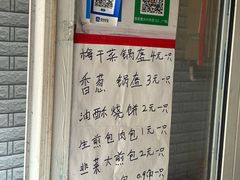 梅干菜锅盔4元一只
香葱 锅盔3元一只
油酥烧饼2元一只
生煎包肉包1元一只
韭菜大煎包2元一只